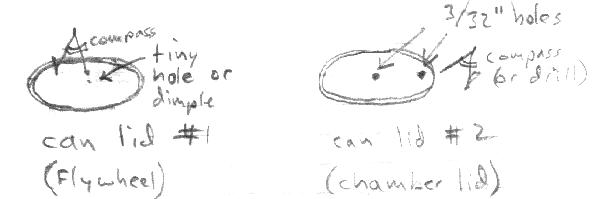 compass
tiny
hole or
dimple
can lid #1
(Flywheel)
3/32" holes
compass
(or drill)
can lid #2
(chamber lid)